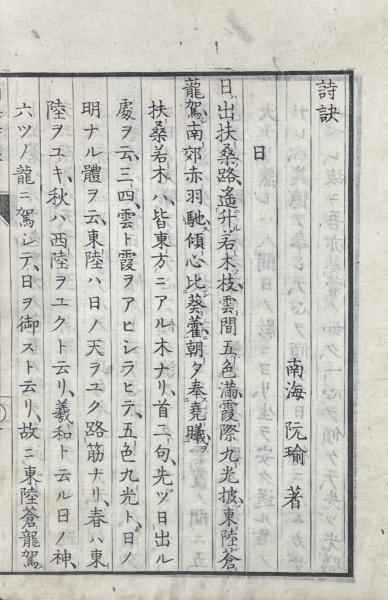 詩訣
南海 阮瑜 著
日
日出扶桑路遙升若木枝雲間五色滿霞際九光披東陸蒼
龍駕南郊赤羽馳傾心比葵藿朝夕奉堯曦
扶桑若木ハ皆東方ニアル木ナリ首二句先ヅ日出ル
處ヲ云三四雲ト霞ヲアヒシラヒテ五色九光ト日ノ
明ナル體ヲ云東陸ハ日ノ天ヲユク路筋ナリ春ハ東
陸ヲユキ秋ハ西陸ヲユクト云リ羲和ト云ル日ノ神
六ツノ龍ニ駕シテ日ヲ御スト云リ故ニ東陸蒼龍駕